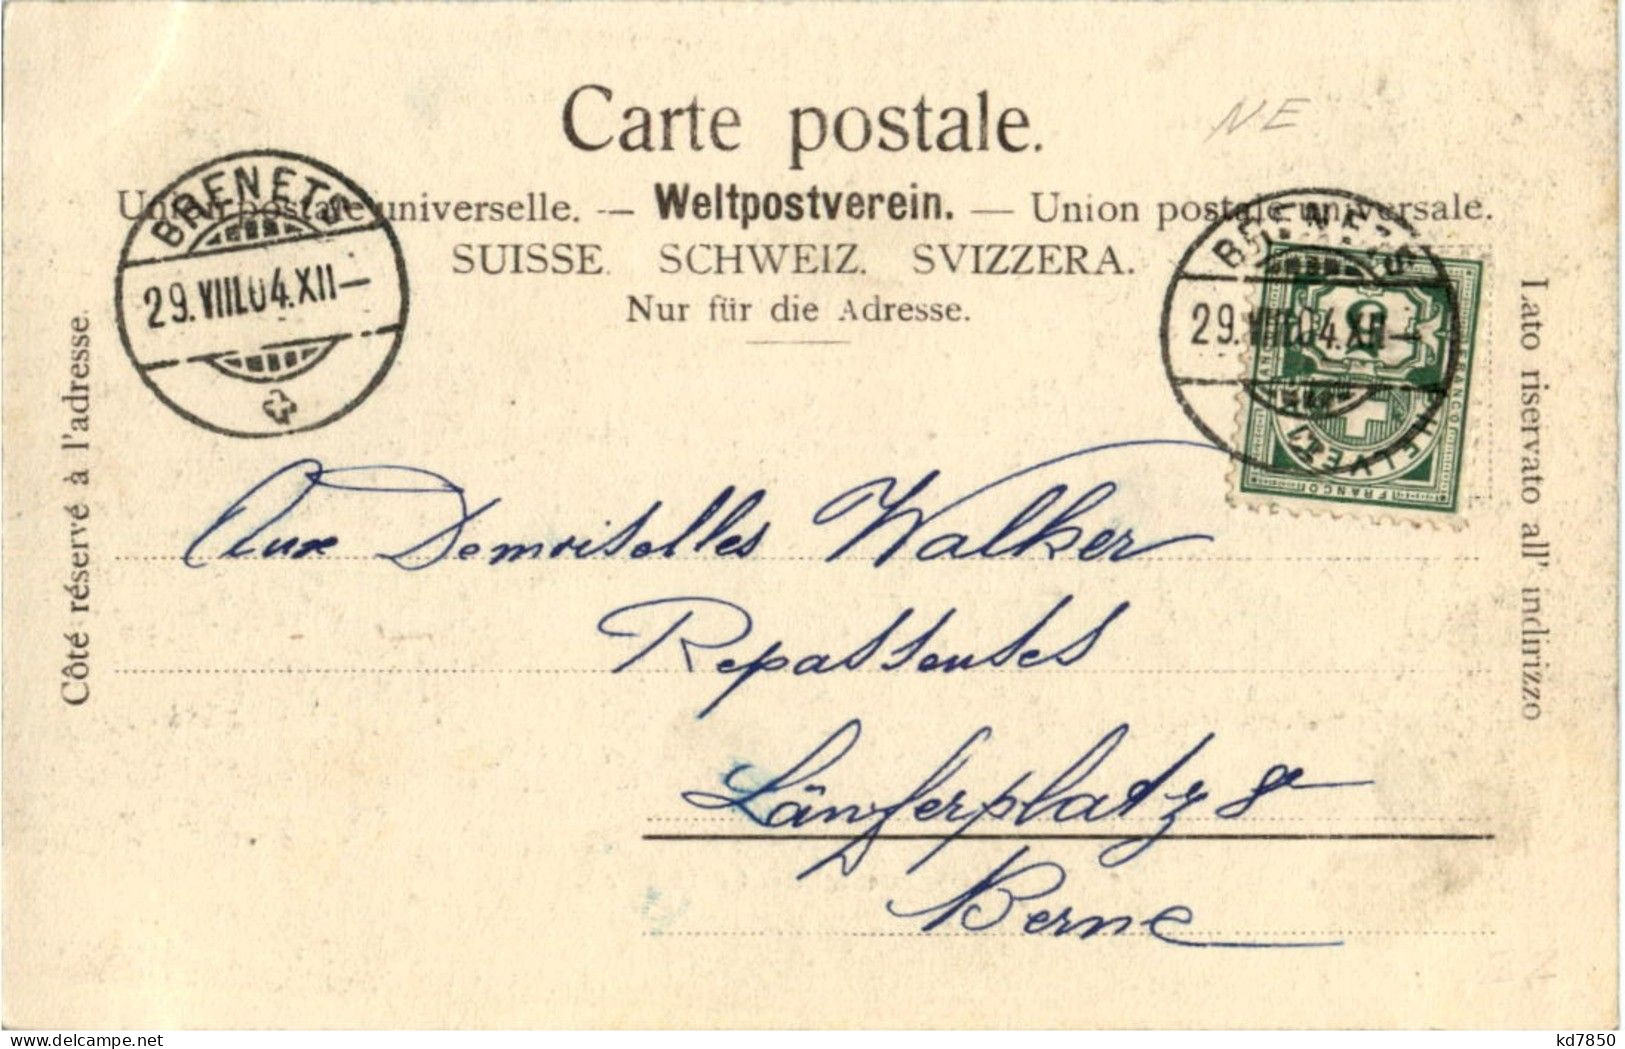 Carte postale.
NE
Union postale universelle. — Weltpostverein. — Union postale universale.
SUISSE. SCHWEIZ. SVIZZERA.
Nur für die Adresse.
BRENETS
29.VIII.04.XII—
BRENETS
29.VIII.04.XII—
2
FRANCO
HELVETIA
FRANCO
Côté réservé à l'adresse.
Lato riservato all' indirizzo
Aux Demoiselles Walker
Repasseuses
Länferplatz 8
Berne
kd7850